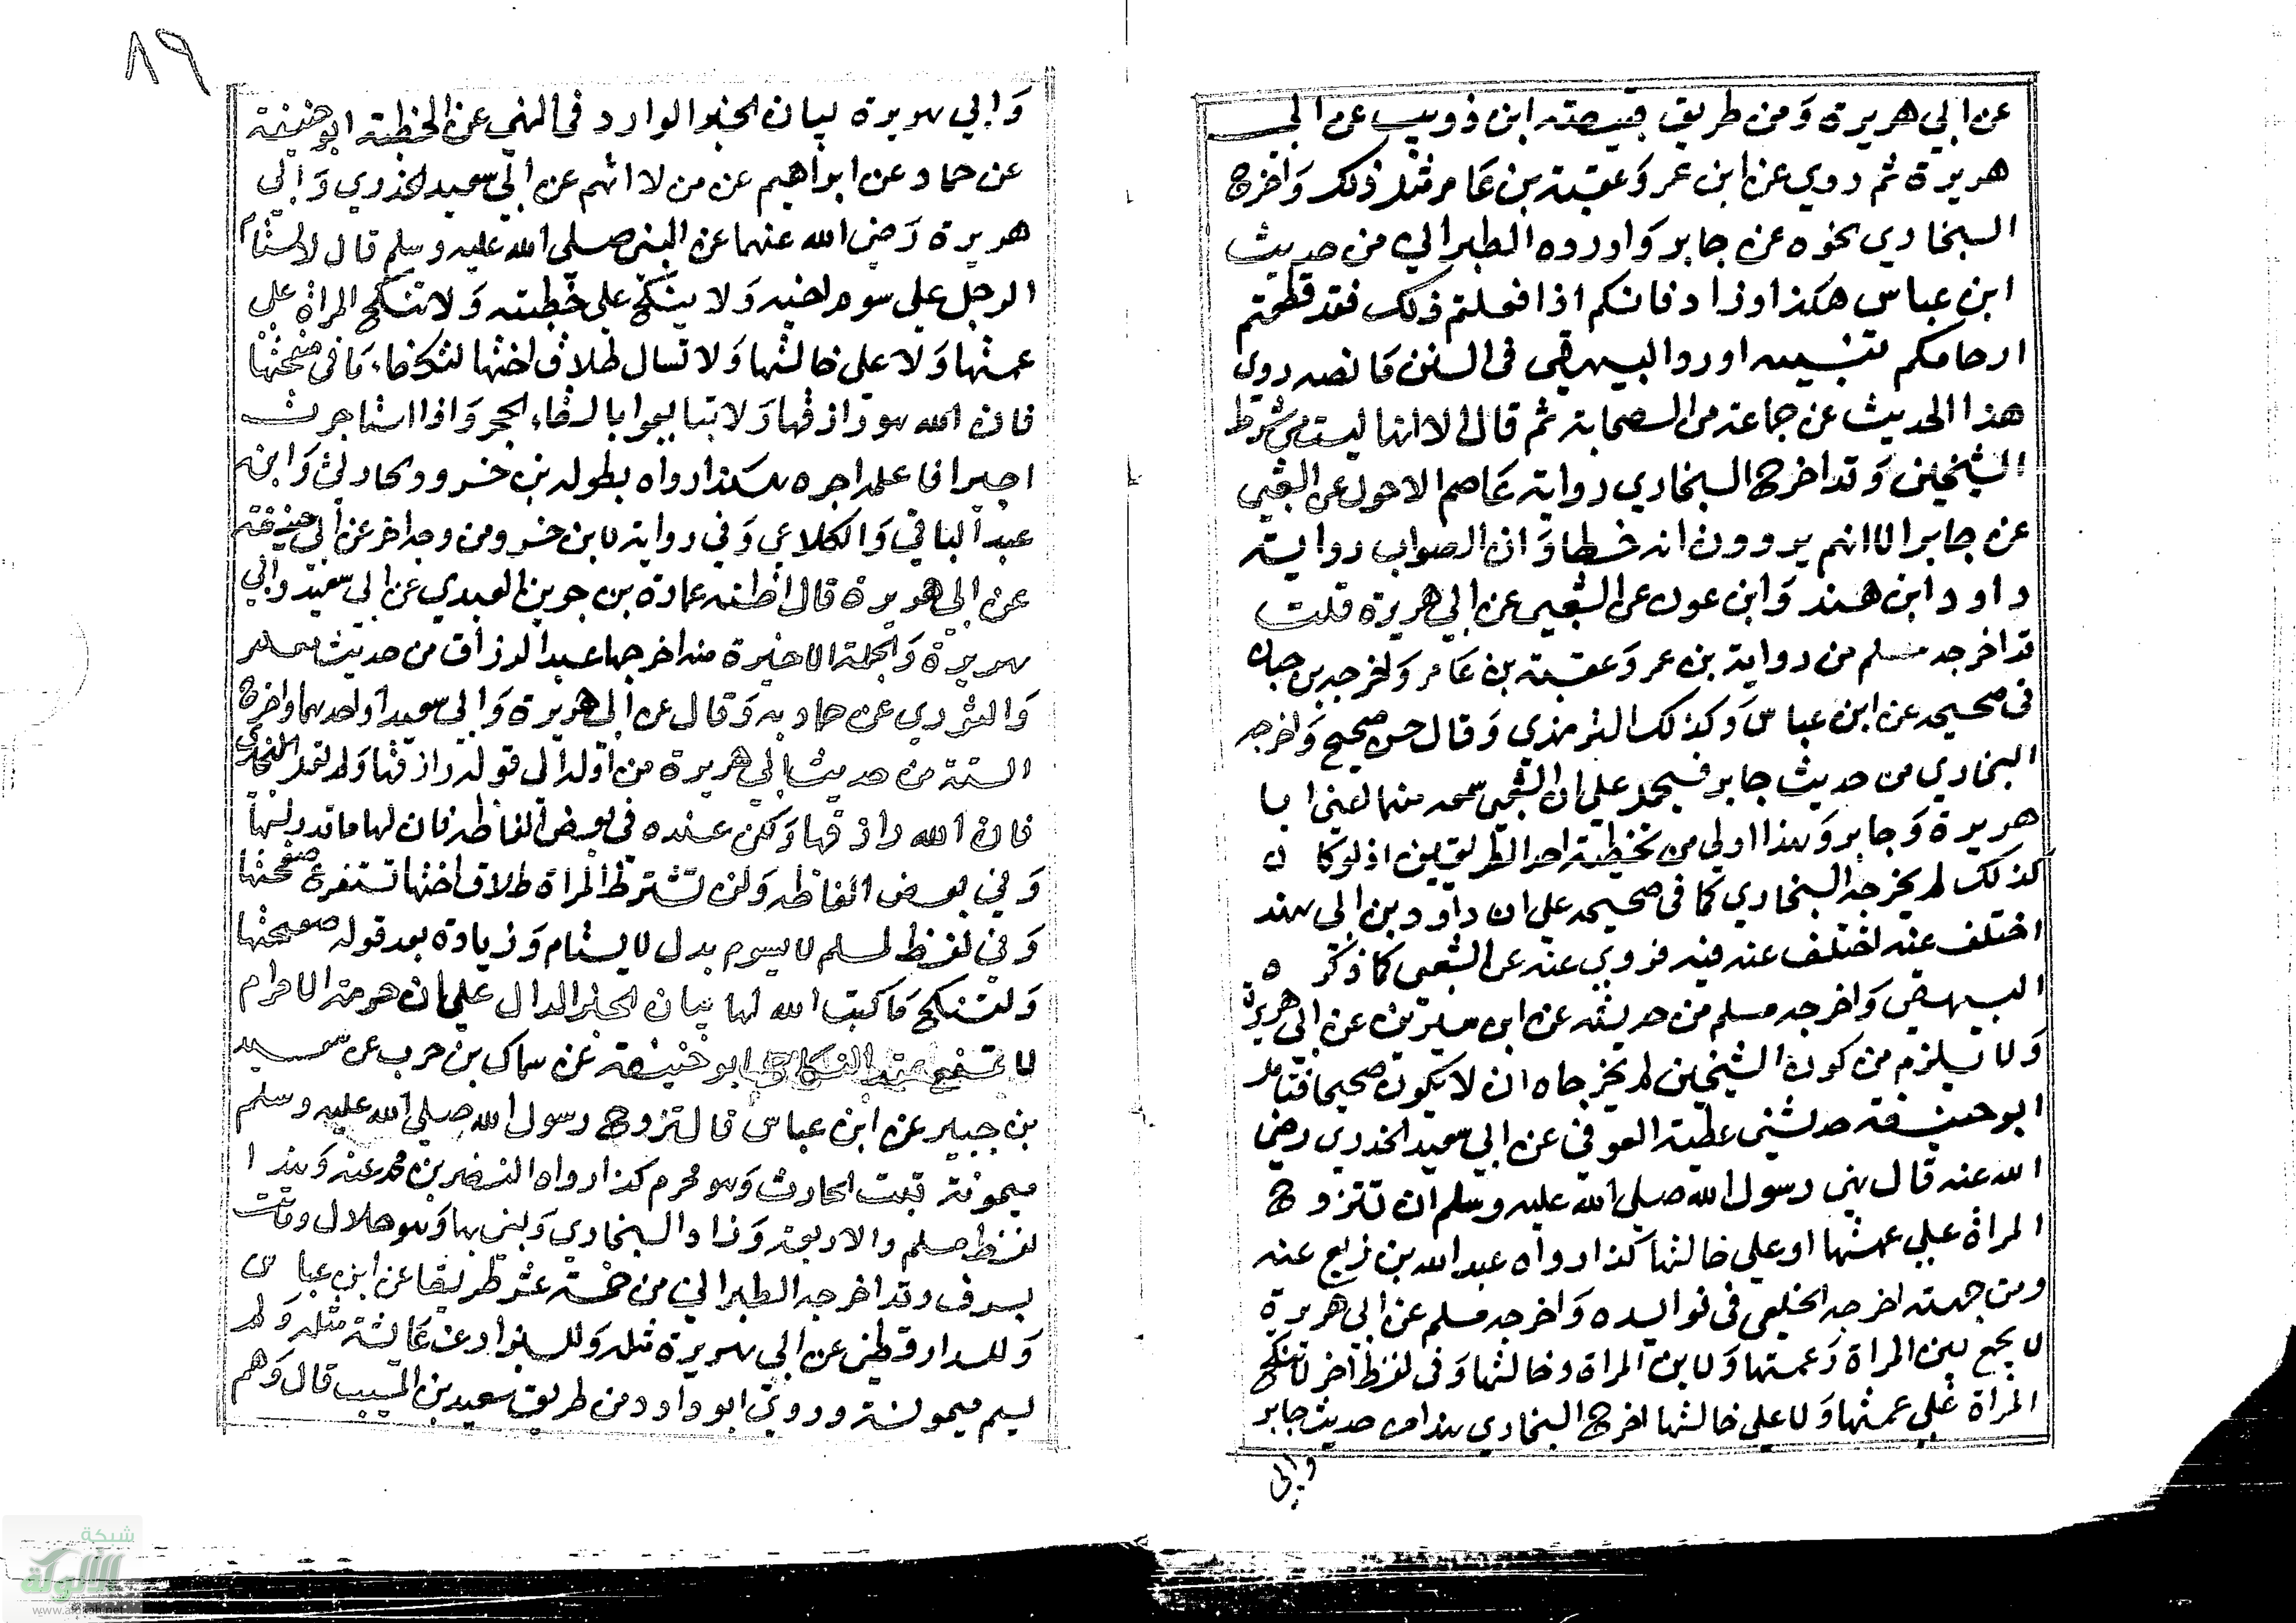 عن ابي هريرة وَمن طريق قبيصة ابن ذويب عن ابي
هريرة ثم روي عن ابن عمر وَعقبة بن عَامر مثل ذلك وَاخرج
البخاري نحوه عن جابر وَاورده الطبراني من حديث
ابن عباس هكذا وزاد فانكم اذا فعلتم ذلك فقد قطعتم
ارحامكم تنبيه اورد البيهقي في السنن مَا نصه روى
هذا الحديث عن جماعة من الصحابة ثم قال الا انها ليست من شرط
الشيخين وَقد اخرج البخاري رواية عَاصم الاحول عن الشعبي
عن جابر الا انهم يروون انه خطا وَان الصواب رواية
داود ابن هند وَابن عون عن الشعبي عن ابي هريرة قلت
قد اخرجه مسلم من رواية بن عمر وَعقبة بن عَامر وَاخرجه بن حبان
في صحيحه عن ابن عباس وَكذلك الترمذي وَقال حسن صحيح وَاخرجه
البخاري من حديث جابر فيحمل علي ان الشعبي سمعه منهما يعني ابا
هريرة وَجابر وَهذا اولي من تخطية احد الطريقين اذ لو كان
كذلك لم يخرجه البخاري كما في صحيحه علي ان داوود بن ابي هند
اختلف عنه اختلف عنه فيه فروي عنه عن الشعبي كما ذكره
البيهقي وَاخرجه مسلم من حديثه عن ابن سيرين عن ابي هريرة
وَلا يلزم من كون الشيخين لم يخرجاه ان لا يكون صحيحا فتامل
ابو حنيفة حدثني عطية العوفي عن ابي سعيد الخدري رضي
الله عنه قال نهي رسول الله صلى الله عليه وسلم ان تتزوج
المراة علي عمتها او علي خالتها كذا رواه عبد الله بن بزيع عنه
ومن جهته اخرجه الخلعي في فوائده وَاخرجه مسلم عن ابي هريرة
لا يجمع بين المراة وَعمتها وَلا بين المراة وخالتها وَفي لفظ اخر لا تنكح
المراة علي عمتها وَلا علي خالتها اخرج البخاري هذا من حديث جابر
وابي
٨٩
وَابي هريرة بيان الخبر الوارد في النهي عن الخطبة ابو حنيفة
عن حماد عن ابراهيم عن من لا اتهم عن ابي سعيد الخدري وَابي
هريرة رَضي الله عنهما عن النبي صلى الله عليه وسلم قال لا يستام
الرجل علي سوم اخيه وَلا ينكح علي خطبته وَلا تنكح المراة علي
عمتها وَلا علي خالتها وَلا تسال طلاق اختها لتكفاء مَا في صحفتها
فان الله هو رَازقها وَلا تبايعوا بالقاء الحجر وَاذا استاجرت
اجيرا فاعلمه اجره هكذا رواه بطوله بن خسرو والحارثي وَابن
عبد الباقي وَالكلاعي وَفي رواية لابن خسرو من وجه اخر عن ابي حنيفة
عن ابي هريرة قال اظنه عمارة بن جوين العبدي عن ابي سعيد وابي
هريرة وَالجملة الاخيرة منه اخرجها عبد الرزاق من حديث معمر
وَالثوري عن حماد به وَقال عن ابي هريرة وَابي سعيد اَو احدهما واخرج
الستة من حديث ابي هريرة من اوله الي قوله رازقها وَلم يقل البخاري
فان الله رازقها وَلكن عنده في بعض الفاظه فان لها ما قدر لها
وَفي بعض الفاظه وَان تشترط المراة طلاق اختها تستفرغ صحفتها
وَفي لفظ لمسلم لا يسوم بدل لا يستام وَزيادة بعد قوله صحفتها
وَلتنكح مَا كتب الله لها بيان الخبر الدال علي ان حرمة الاحرام
لا تمنع عقد النكاح ابو حنيفة عن سماك بن حرب عن سعيد
بن جبير عن ابن عباس قال تزوج رسول الله صلى الله عليه وسلم
ميمونة بنت الحارث وَهو محرم كذا رواه النضر بن محمد عنه وَهذا
لفظ مسلم والاربعة وَزاد البخاري وَبني بها وَهو حلال وماتت
بسرف وقد اخرجه الطبراني من خمسة عشر طريقا عن ابن عباس
وَللدارقطني عن ابي هريرة مثله وَللبزار عن عَائشة مثله وَلم
يسم ميمونة وروي ابو داود من طريق سعيد بن المسيب قال وَهم
شبكة
الألوكة
www.alukah.net